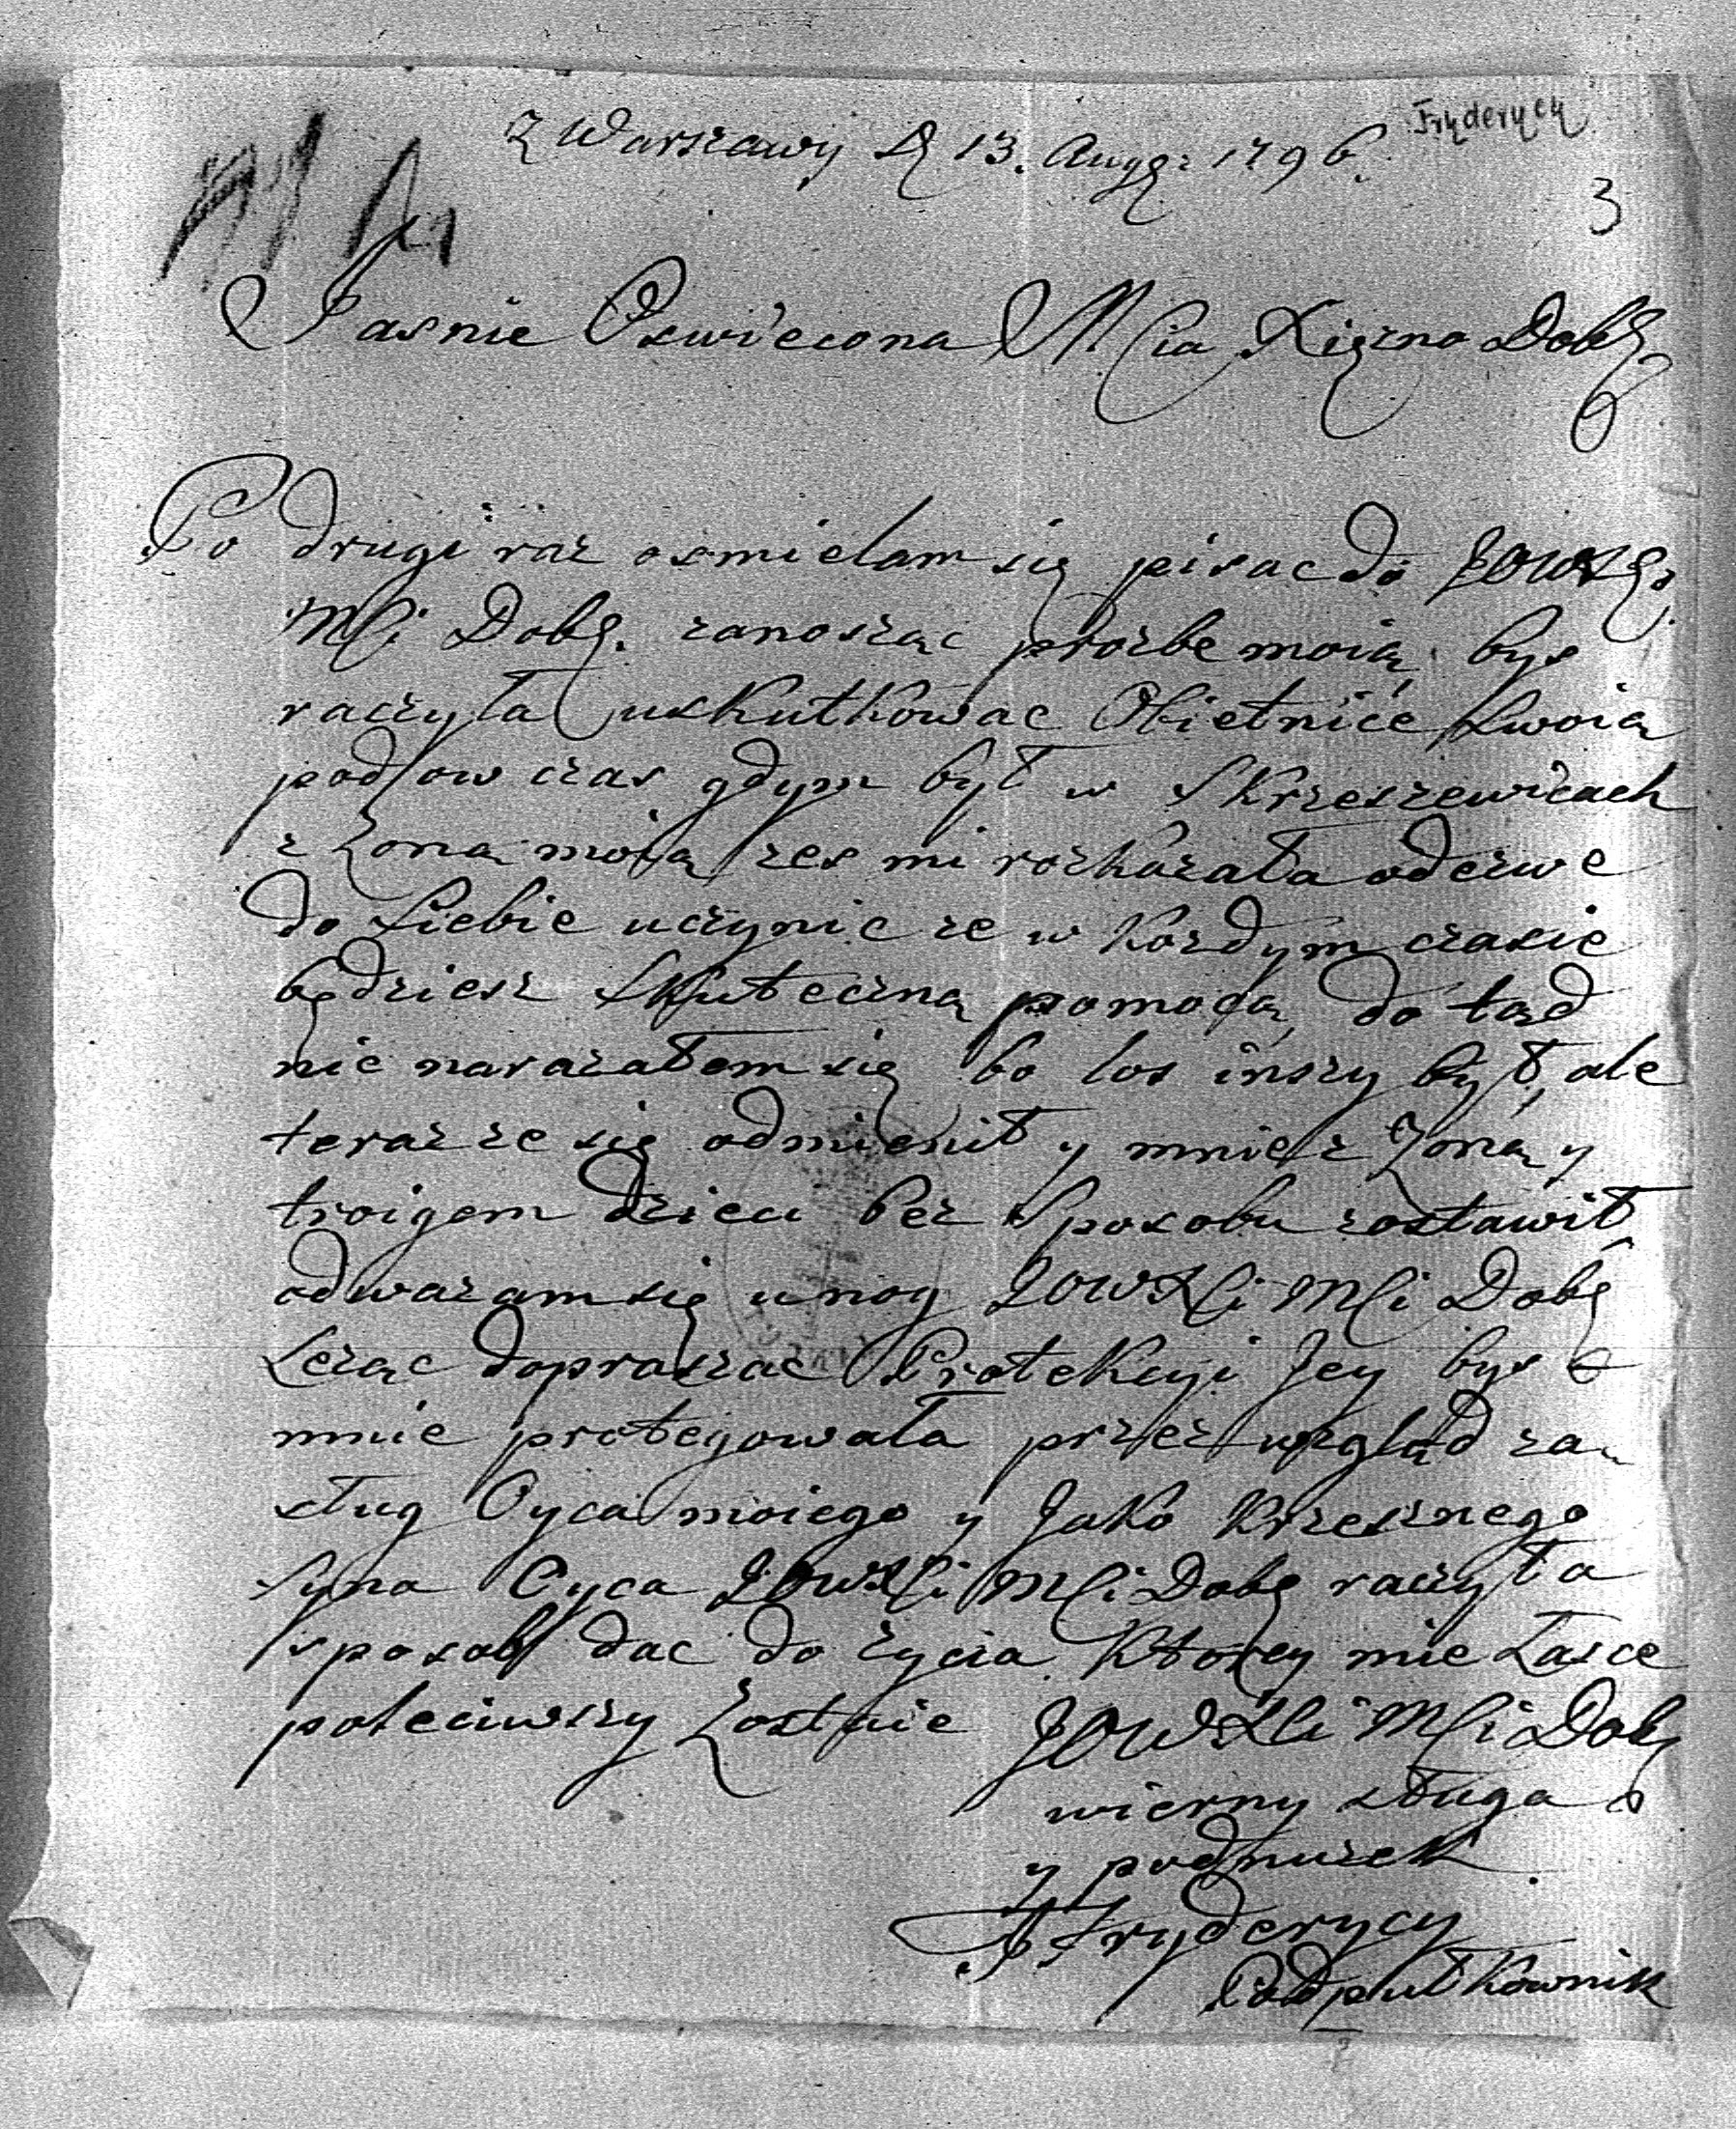 Fryderycy
Z Warszawy D 13. Augg: 1796.
3
Jasnie Oswiecona MCia Xięzno Dobg
Po drugi raz osmielam się pisac do JOWXg.
MCi Dobg. zanosząc prozbe moią bys
raczyła uskutkowac Obietnice swoią
pod ow czas gdym był w Skrzeszewicach
z Zoną moią zes mi rozkazała odezwe
do Siebie uczynic ze w kozdym czasie
będziesz Skuteczną pomocą, do tąd
nie narazałem się bo los inszy był, ale
teraz ze się odmienił y mnie z Zoną y
troigem dzieci bez Sposobu zostawił
odwazam się u nog JOWXCi MCi Dobg
Leząc dopraszac Protekcyi Jey bys
mnie protegowała przez wzgląd za
sług Oyca moiego y Jako krzesznego
Syna Oyca JOWXCi MCi Dobg raczyła
sposob dac do zycia Ktorey mie Łasce
poleciwszy Zostaie JOWXCi MCi Dobg
wierny sługa
y podnuzek
Fryderycy
Podpułkownik